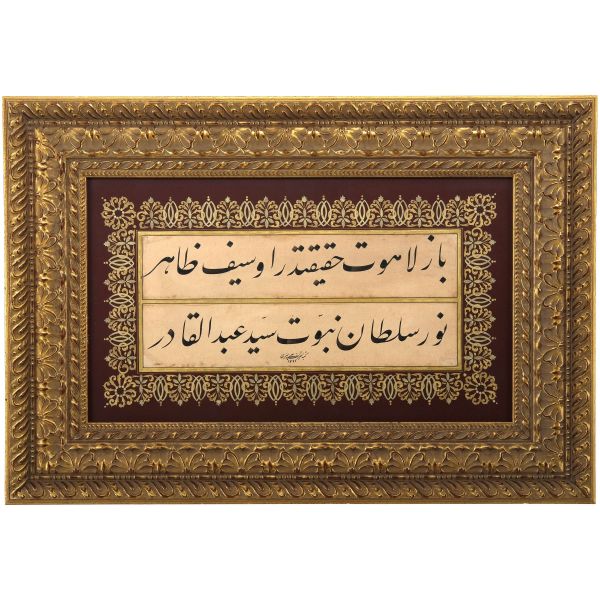 باز لاهوت حقيقتدر او سيف ظاهر
نور سلطان نبوت سيد عبد القادر